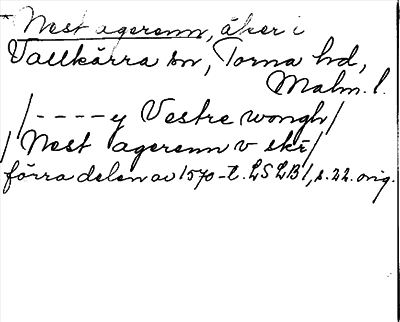 Nest agerenn, åker i
Vallkärra sn, Torna hd,
Malm. l.
/ - - - - y Vestre wongh/
/ Nest agerenn v skr/
förra delen av 1570-t. LSLB 1, s. 22. orig.